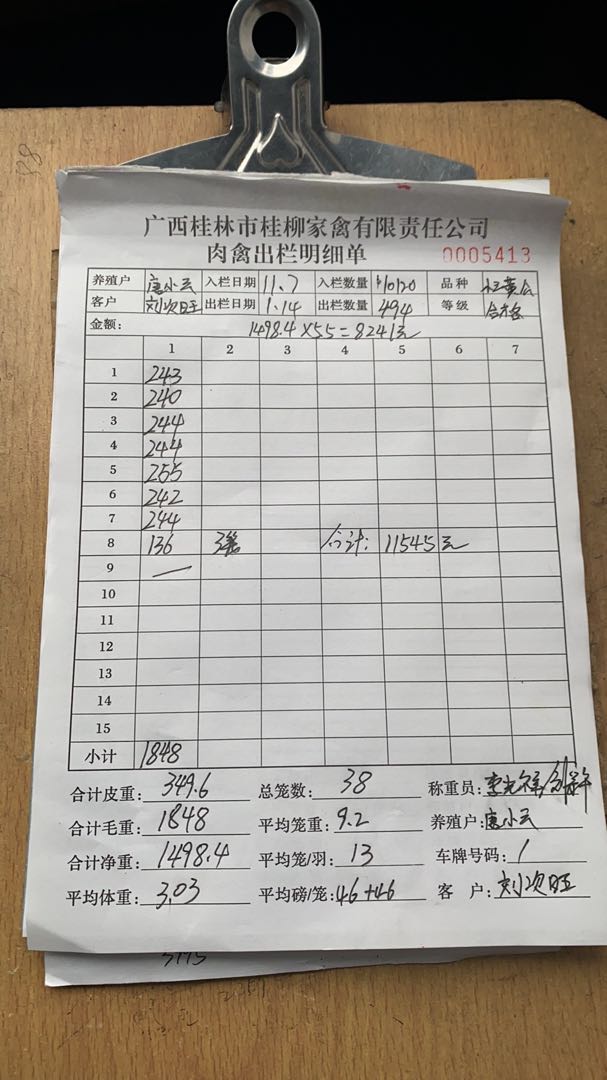 广西桂林市桂柳家禽有限责任公司
肉禽出栏明细单 0005413
养殖户 唐小云 入栏日期 11.7 入栏数量 10120 品种
客户 刘次旺 出栏日期 1.14 出栏数量 494 等级 合格
金额: 1498.4×55=8241元
1 2 3 4 5 6 7
1 243
2 240
3 244
4 244
5 255
6 242
7 244
8 136 3笼 合计: 11545元
9 —
10
11
12
13
14
15
小计 1848
合计皮重: 349.6 总笼数: 38 称重员:
合计毛重: 1848 平均笼重: 9.2 养殖户: 唐小云
合计净重: 1498.4 平均笼/羽: 13 车牌号码: /
平均体重: 3.03 平均磅/笼: 46+46 客户: 刘次旺